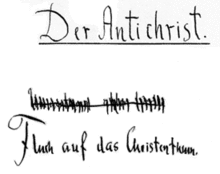 Der Antichrist.
Fluch auf das Christenthum.